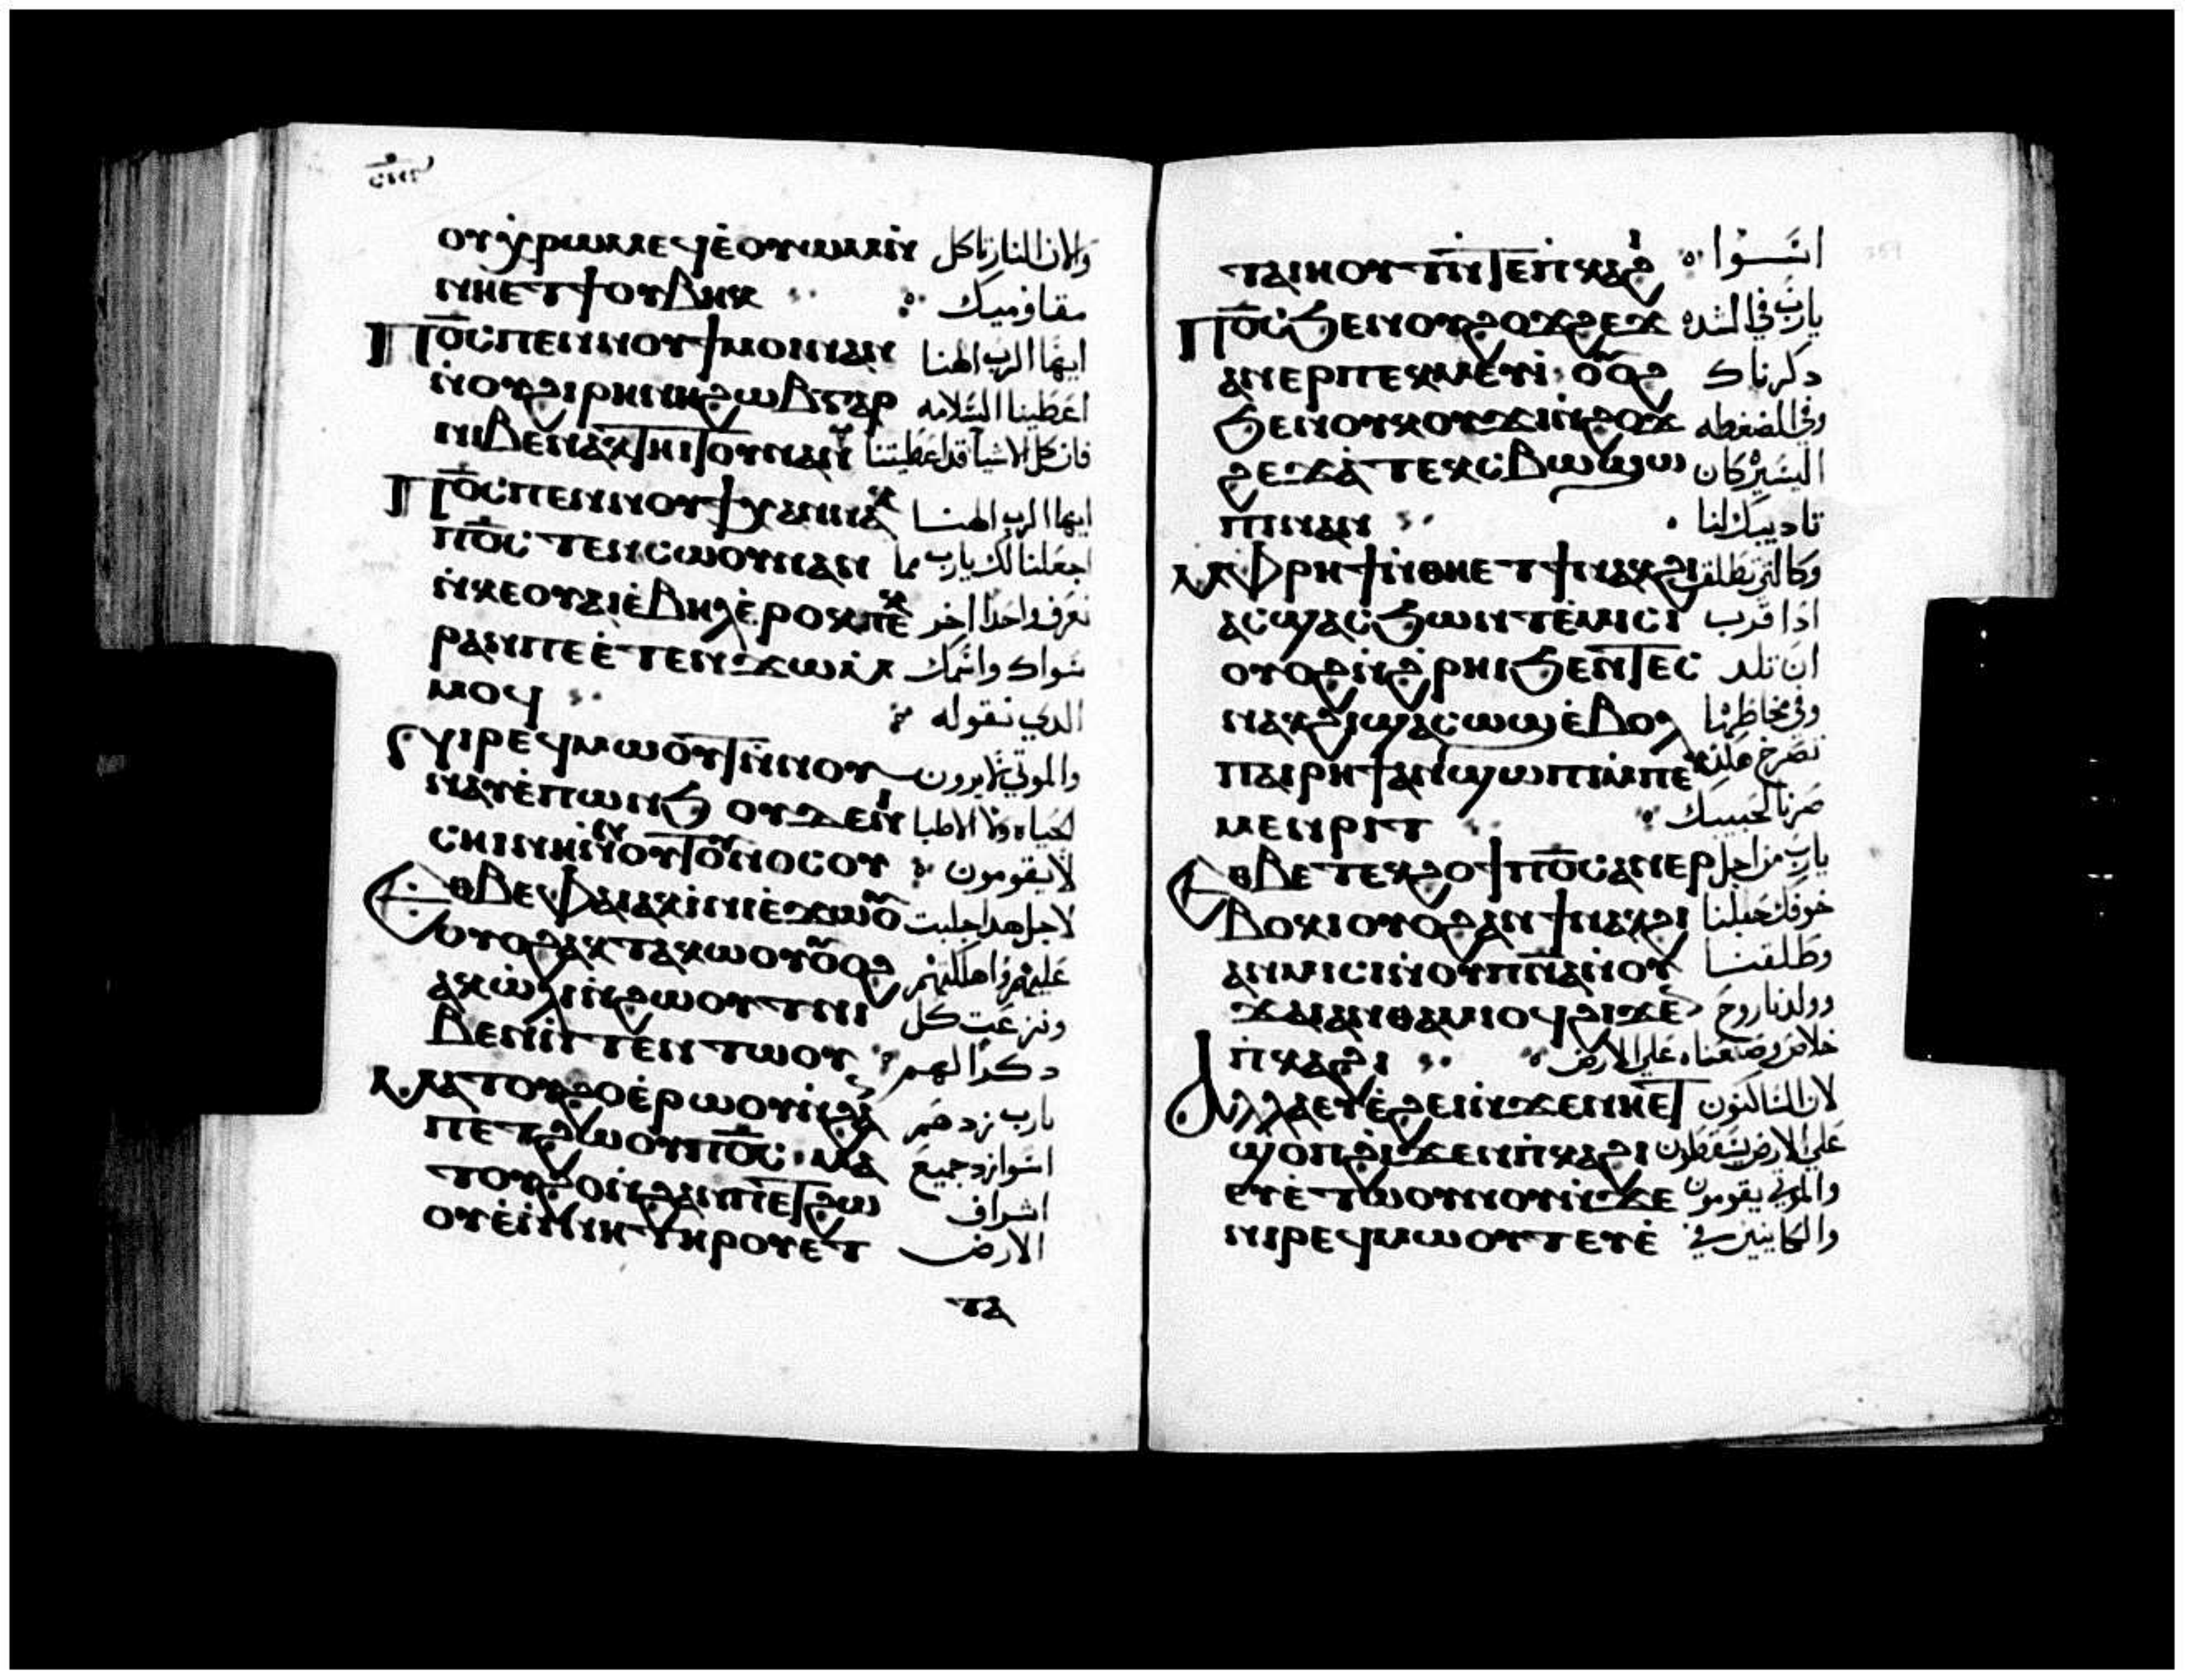 ⲟⲩⲭⲣⲱⲙⲉϥⲉ̇ⲟⲩⲱⲙⲛ̇ والان النار تاكل
ⲛⲏⲉⲧϯⲟⲩⲃⲏⲕ مقاوميك
Ⲡⲟ̅ⲥ̅ⲡⲉⲛⲛⲟⲩϯⲙⲟⲓⲛⲁⲛ ايها الرب الهنا
ⲛ̇ⲟⲩϩⲓⲣⲏⲛⲏϩⲱⲃⲅⲁⲣ اعطينا السلامه
ⲛⲓⲃⲉⲛⲁⲕⲧⲏⲓⲧⲟⲩⲛⲁⲛ فان كل الاشيا قد اعطيتنا
Ⲡⲟ̅ⲥ̅ⲡⲉⲛⲛⲟⲩϯ ايها الرب الهنا
ⲡⲟ̅ⲥ̅ⲧⲉⲛⲥⲱⲟⲩⲛⲁⲛ اجعلنا لك يارب ما
ⲛ̇ⲕⲉⲟⲩⲁⲓⲉ̇ⲃⲏⲗⲉ̇ⲣⲟⲕⲡⲉⲕ نعرف واحدا اخر
ⲣⲁⲛⲡⲉⲉ̇ⲧⲉⲛϫⲱⲙ̇ سواك واسمك
ⲙⲟϥ الدي نقوله
ⲛⲓⲣⲉϥⲙⲱⲟⲩⲧⲛ̇ⲛⲟⲩ والموتي لايرون
ⲛⲁⲩⲉ̇ⲡⲱⲛϧ ⲟⲩϫⲉⲛⲓ الحياه ولا الاطبا
ⲥⲏⲓⲛⲓⲛ̇ⲛⲟⲩⲧⲟⲩⲛⲟⲥⲟⲩ لايقومون
Ⲉⲑⲃⲉⲫⲁⲓⲁⲕⲓ̇ⲛⲓⲉ̇ϫⲱⲟⲩ لاجل هدا جلبت
ⲟⲩⲟϩⲁⲕⲧⲁⲕⲱⲟⲩⲟⲩⲟϩ عليهم واهلكتهم
ⲁⲕⲱ̇ⲗⲓⲛ̇ϩⲱⲟⲩⲧⲛⲓ ونزعت كل
ⲃⲉⲛⲛ̇ⲧⲉⲛⲧⲱⲟⲩ دكرا لهم
Ⲙⲁⲧⲟⲩϩⲟⲉ̇ⲣⲱⲟⲩⲛ̇ϩⲁⲛ يارب زدهم
ⲡⲉⲧϩⲱⲟⲩⲡⲟ̅ⲥ̅ ⲙⲁ اسوا زد جميع
ⲧⲟⲩϩⲟⲛ̇ϩⲁⲛⲡⲉⲧϩⲱ اشراف
ⲟⲩⲉ̇ⲛ̇ⲛⲏⲧⲏⲣⲟⲩⲉⲧ الارض
ⲧⲁ
ⲧⲁⲓⲏⲟⲩⲧⲛ̇ⲧⲉⲡ̇ⲕⲁϩⲓ اتسوا
Ⲡⲟ̅ⲥ̅ϧⲉⲛⲟⲩϩⲟϫϩⲉϫ يارب في الشده
ⲁⲛⲉⲣⲡⲉⲕⲙⲉⲩⲓ̇ ⲟⲩⲟϩ دكرناك
ϧⲉⲛⲟⲩⲕⲟⲩϫⲓⲛ̇ϩⲟϫ وفي الضغطه
ϩⲉϫⲁ̇ⲧⲉⲕⲥⲃⲱϣⲱ اليسيره كان
ⲡⲓⲛⲁⲛ تاديبك لنا
Ⲙ̇ⲫⲣⲏϯⲛ̇ⲑⲏⲉⲧϯⲛⲁⲕϩⲓ وكالتي تطلق
ⲁⲥϣⲁⲥϧⲱⲛⲧⲉ̇ⲙⲓⲥⲓ ادا قرب
ⲟⲩⲟϩⲛ̇ϩ̇ⲣⲏⲓϧⲉⲛⲧⲉⲥ ان تلد
ⲛⲁⲕϩⲓϣⲁⲥⲱϣⲉ̇ⲃⲟⲗ وفي مخاطرتها
ⲡⲁⲓⲣⲏϯⲁⲛϣⲱⲡⲓⲙ̇ⲡⲉⲕ تصرخ هكدا
ⲙⲉⲛⲣⲓⲧ صرنا لحبيبك
Ⲉⲑⲃⲉⲧⲉⲕϩⲟϯⲡⲟ̅ⲥ̅ⲁⲛⲉⲣ يارب من اجل
ⲃⲟⲕⲓⲟⲩⲟϩⲁⲛϯⲛⲁⲕϩⲓ خوفك حبلنا
ⲁⲛⲙⲓⲥⲓⲛ̇ⲟⲩⲡⲛ̅ⲁ̅ⲛ̇ⲟⲩ وطلقنا
ϫⲁⲓⲁⲛⲑⲁⲙⲓⲟϥϩⲓϫⲉⲛ وولدنا روح
ⲡ̇ⲕⲁϩⲓ خلاص وصنعناه علي الارض
Ⲁⲗⲗⲁⲉⲩⲉ̇ϩⲉⲓⲛ̇ϫⲉⲛⲏⲉⲧ لان الساكنون
ϣⲟⲡϩⲓϫⲉⲛⲡ̇ⲕⲁϩⲓ علي الارض يسقطون
ⲉⲩⲉ̇ⲧⲱⲟⲩⲛⲟⲩⲛ̇ϫⲉ والموتي يقومون
ⲛⲓⲣⲉϥⲙⲱⲟⲩⲧⲉⲩⲉ̇ والكاينين في